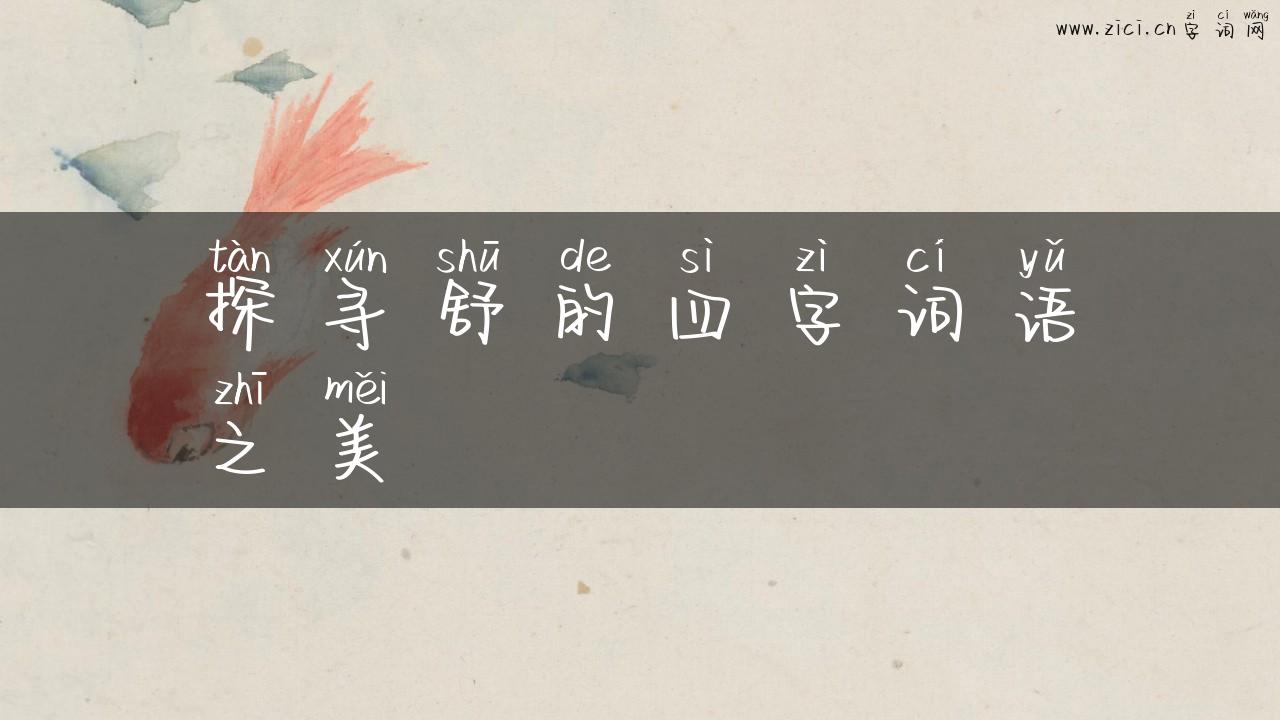 zì cí wǎng
www.zici.cn 字 词 网
tàn xún shū de sì zì cí yǔ
探 寻 舒 的 四 字 词 语
zhī měi
之 美